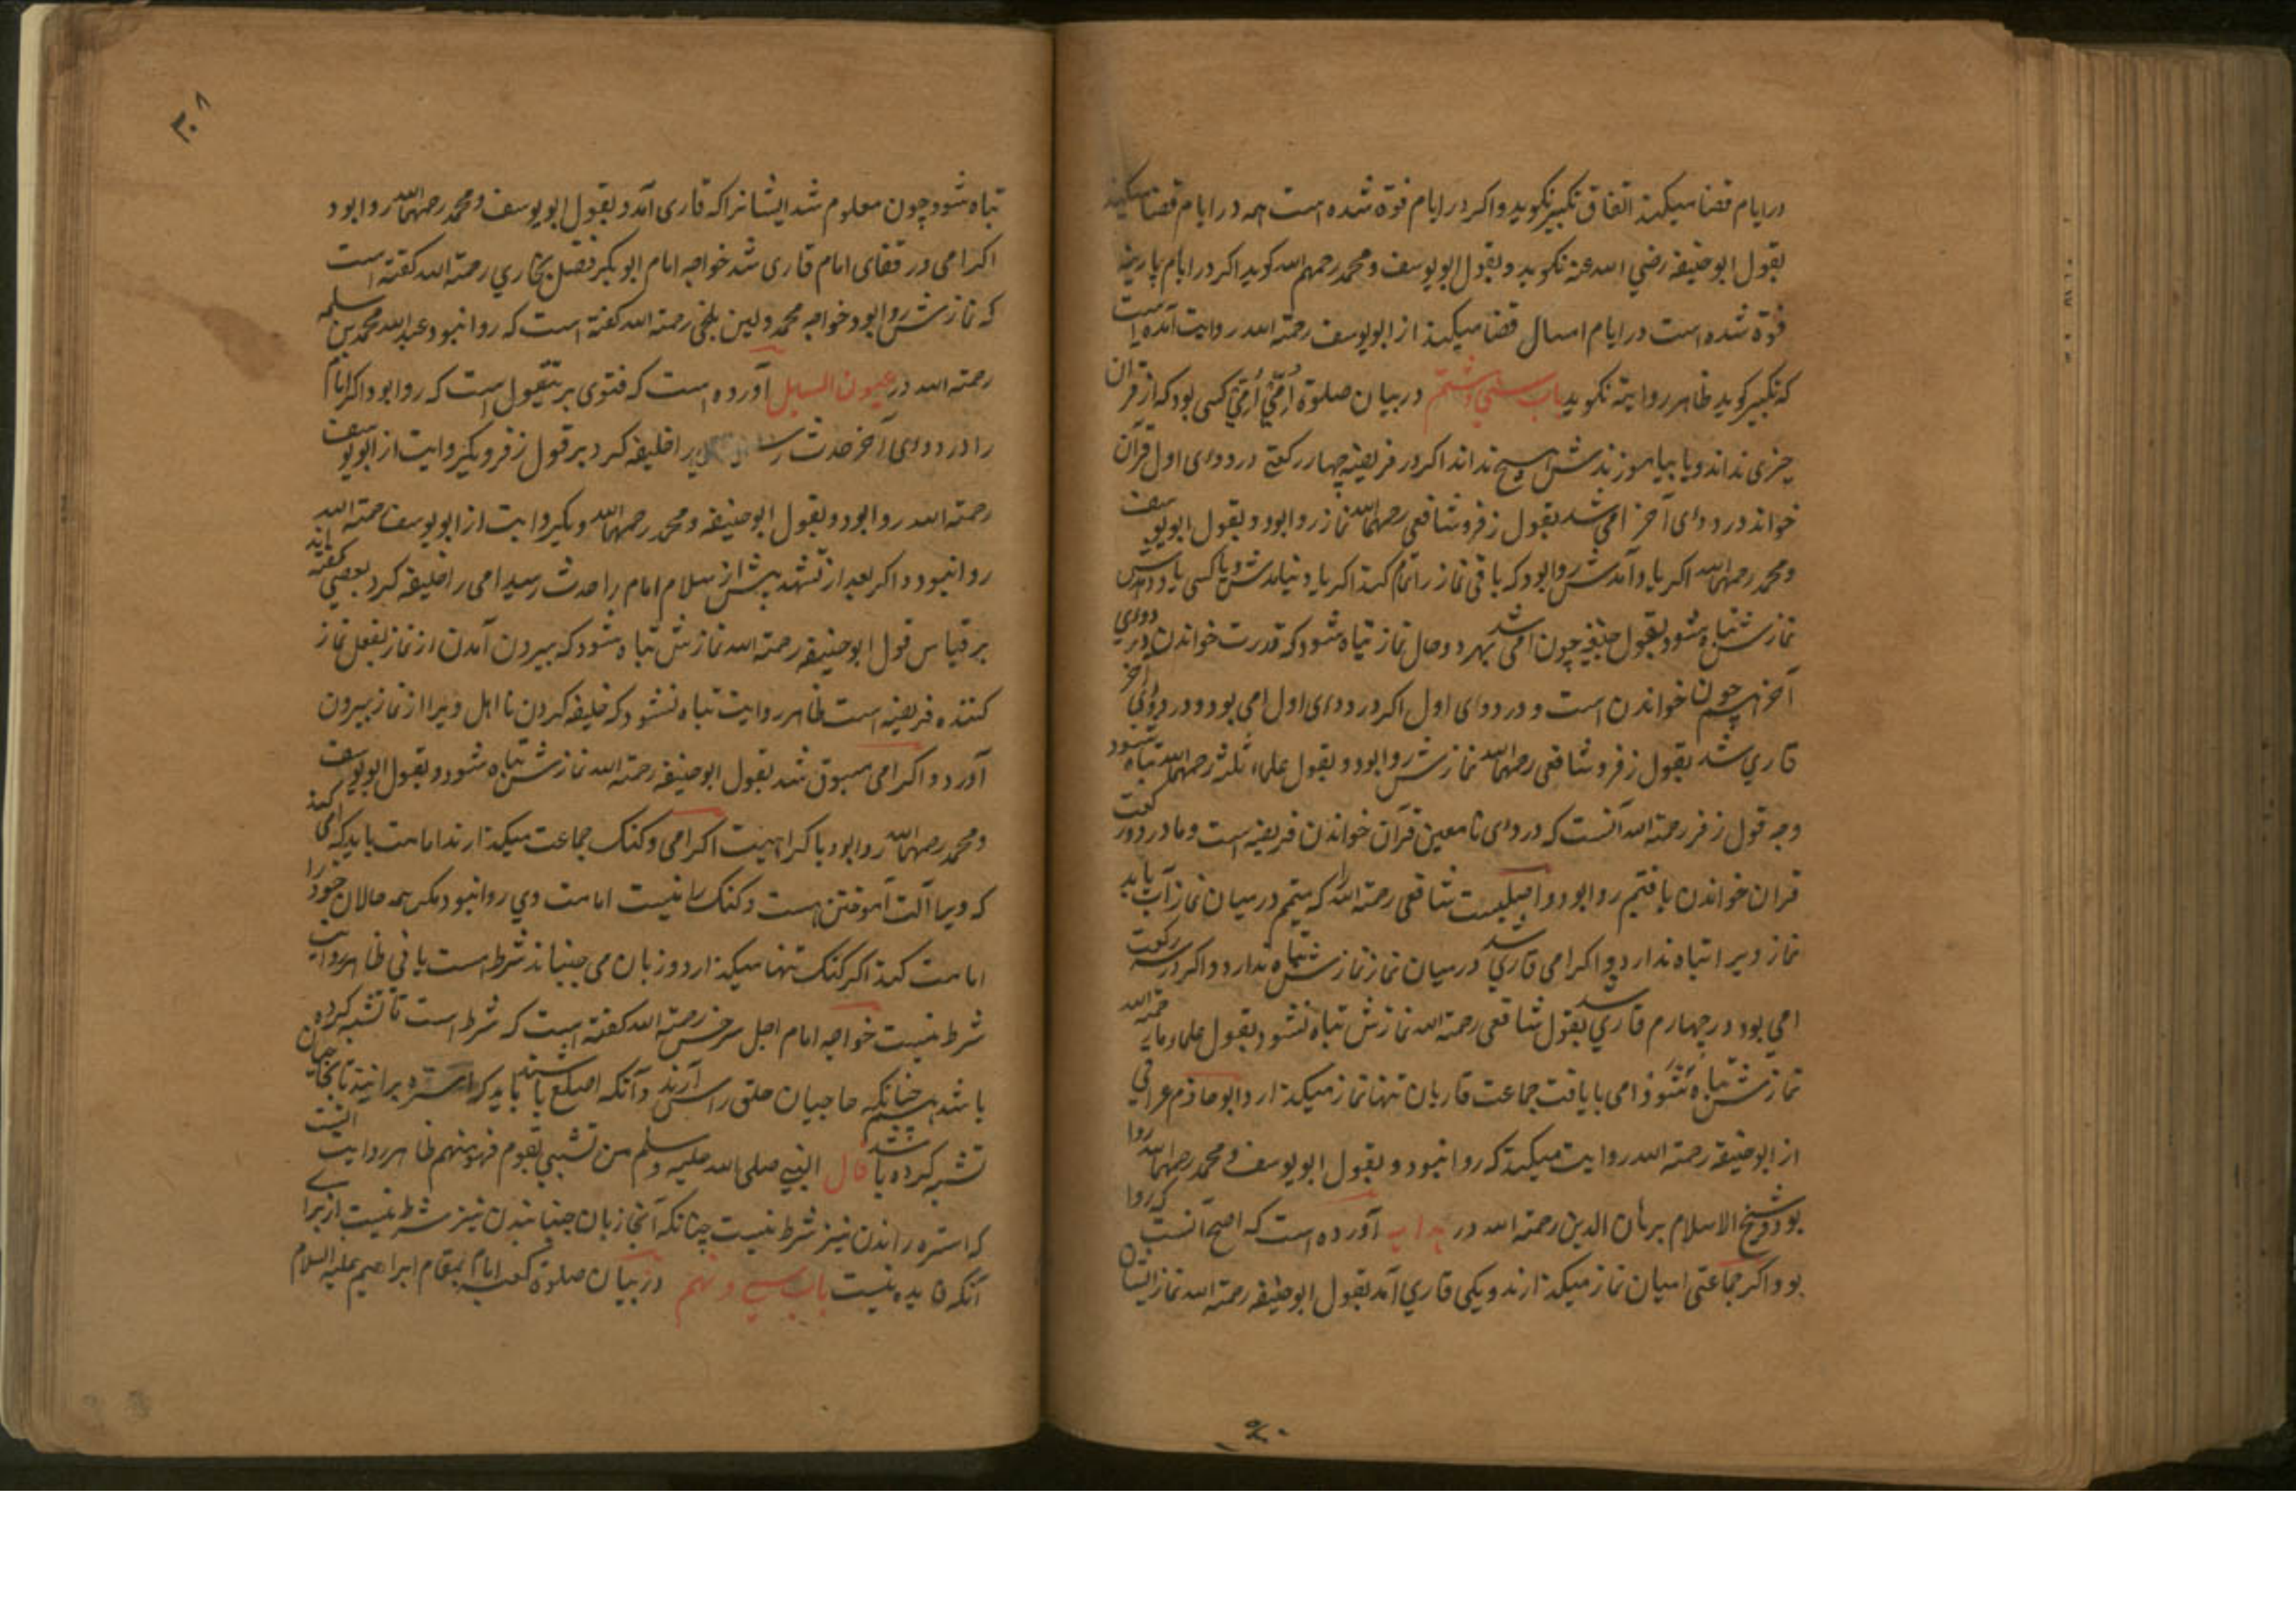 در ایام قضا میکند اتفاق تکبیر نکوید و اکر در ایام فوة شده است همه در ایام قضا میکند
بقول ابو حنیفه رضي الله عنه نکوید و بقول ابو یوسف و محمد رحمهم الله کوید اکر در ایام پارینه
فوة شده است در ایام امسال قضا میکند از ابو یوسف رحمة الله روایت آمده است
که تکبیر کوید ظاهر روایة نکوید باب سی و هشتم در بیان صلوة اُمّي اُمّي کسی بود که از قرآن
چیزی نداند و یا بیاموزندش هیچ نداند اکر در فریضه چهار رکعتے در دوی اول قرآن
خواند در دوی آخر امی شد بقول زفر و شافعی رحمهما الله نماز روا بود و بقول ابو یوسف
و محمد رحمهما الله اکر یاد آمدش روا بود که باقی نماز را تمام کند اکر یاد نیامدش و یا کسی یاد دادش
نمازش تباه شود بقول حنیفه چون امی شد بهر دو حال نماز تباه شود که قدرت خواندن در دوی
آخر همچون خواندن است و در دوی اول اکر در دوی اول امي بود و در دوی آخر
قاري شد بقول زفر و شافعی رحمهما الله نمازش روا بود و بقول علماء ثلثه رحمهم الله تباه شود
وجه قول زفر رحمة الله آنست که در دوی نامعین قرآن خواندن فریضه است و ما در دو رکعت
قران خواندن یافتیم روا بود و اصلیست شافعی رحمة الله را که متیمم در میان نماز آب یابد
نماز ویرا تباه ندارد و اکر امی قاري شد در میان نماز نمازش تباه ندارد و اکر در سه رکعت
امی بود در چهارم قاري شد بقول شافعی رحمة الله نمازش تباه نشود بقول علماء ما رحمهم الله
نمازش تباه شود امی با یافت جماعت قاریان تنها نماز میکذارد ابو حازم عراقي
از ابو حنیفه رحمة الله روایت میکند که روا نبود و بقول ابو یوسف و محمد رحمهما الله روا
بود و شیخ الاسلام برهان الدین رحمة الله در هدایه آورده است که اصح آنست که روا
بود و اکر جماعتی امیان نماز میکذارند و یکی قاري آمد بقول ابو حنیفه رحمة الله نماز ایشان
۳۰۸
تباه شود چون معلوم شد ایشانرا که قاری آمد و بقول ابو یوسف و محمد رحمهما الله روا بود
اکر امی در قفای امام قاری شد خواجه امام ابو بکر فضل بخاري رحمة الله کفته است
که نمازش روا بود خواجه محمد بلخی رحمة الله کفته است که روا نبود عبد الله محمد بن سلمه
رحمة الله در عیون المسایل آورده است که فتوی بر قول است که روا بود اکر امام
را در دوی آخر حدث را خلیفه کرد بر قول زفر و یکروایت از ابو یوسف
رحمة الله روا بود و بقول ابو حنیفه و محمد رحمهما الله و یکروایت از ابو یوسف رحمة الله
روا نبود و اکر بعد از تشهد پیش از سلام امام را حدث رسید امی را خلیفه کرد بعضي کفته اند
بر قیاس قول ابو حنیفه رحمة الله نمازش تباه شود که بیرون آمدن از نماز بفعل نماز
کننده فریضه است ظاهر روایت تباه نشود که خلیفه کردن نا اهل ویرا از نماز بیرون
آورد و اکر امی مسبوق شد بقول ابو حنیفه رحمة الله نمازش تباه شود و بقول ابو یوسف
و محمد رحمهما الله روا بود با کراهیت اکر امی و کنک جماعت میکذارند امامت باید که امی کند
که ویرا آلت آموختن هست و کنک را نیست امامت وي روا نبود مکر همه حالان خود را
امامت کند اکر کنک تنها میکذارد و زبان می جنباند شرط است یا نی ظاهر روایت
شرط نیست خواجه امام اجل سرخسی رحمة الله کفته است که شرط است تا تشبه کرده
باشد همچنانکه حاجیان حلق راس آرند و آنکه اصلع باشد باید که استره براند تا بحاجیان
تشبه کرده باشد قال النبی صلی الله علیه وسلم من تشبه بقوم فهو منهم ظاهر روایت آنست
که استره راندن نیز شرط نیست چنانکه آنجا زبان جنبانیدن نیز شرط نیست از براے
آنکه فایده نیست باب سے و نهم در بیان صلوة کعبه امام بمقام ابراهیم علیه السلام